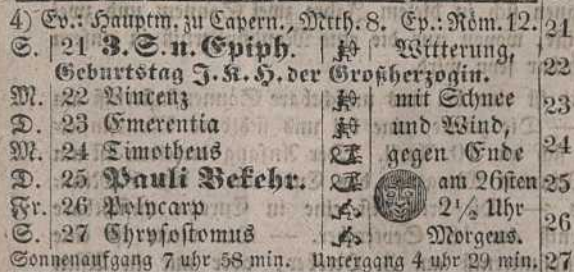 4) Ev.: Hauptm. zu Capern., Mtth. 8. Ep.: Röm. 12. 21
S. 21 3. S. n. Epiph. Witterung,
Geburtstag J. K. H. der Großherzogin. 22
M. 22 Vincenz mit Schnee 23
D. 23 Emerentia und Wind,
M. 24 Timotheus gegen Ende 24
D. 25 Pauli Bekehr. am 26sten 25
Fr. 26 Polycarp 2½ Uhr 26
S. 27 Chrysostomus Morgens.
Sonnenaufgang 7 uhr 58 min. Untergang 4 uhr 29 min. 27